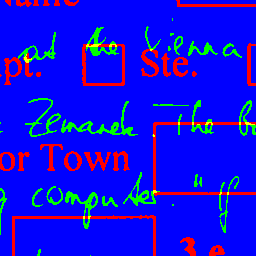 Name
at the Vienna
pt. Ste.
Zemanek The
or Town
computer." If
3.e